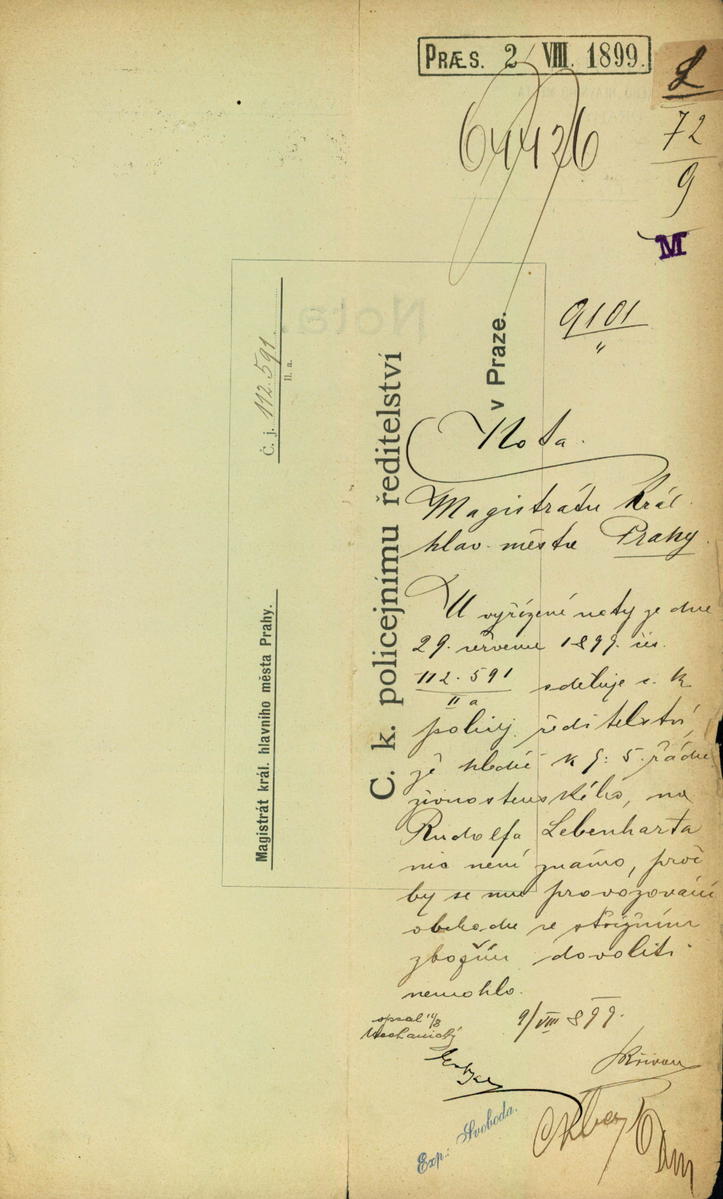 PRÆS. 2 VIII. 1899.
L
72
9
64426
M
9101
"
Č. j. 112.591
II. a.
Magistrát král. hlavního města Prahy.
C. k. policejnímu ředitelství
v Praze.
Nota.
Nota.
Magistrátu král.
hlav. města Prahy.
U vyřízení noty ze dne
29. července 1899 čís.
112.591
II a
sděluje c. k.
policej. ředitelství,
že hledíc k §: 5. řádu
živnostenského, na
Rudolfa Lebenharta
nic není známo, proč
by se mu provozování
obchodu se střižním
zbožím dovoliti
nemohlo.
9/VIII 899.
opsal 11/8
Křivan
Exp.: Svoboda.